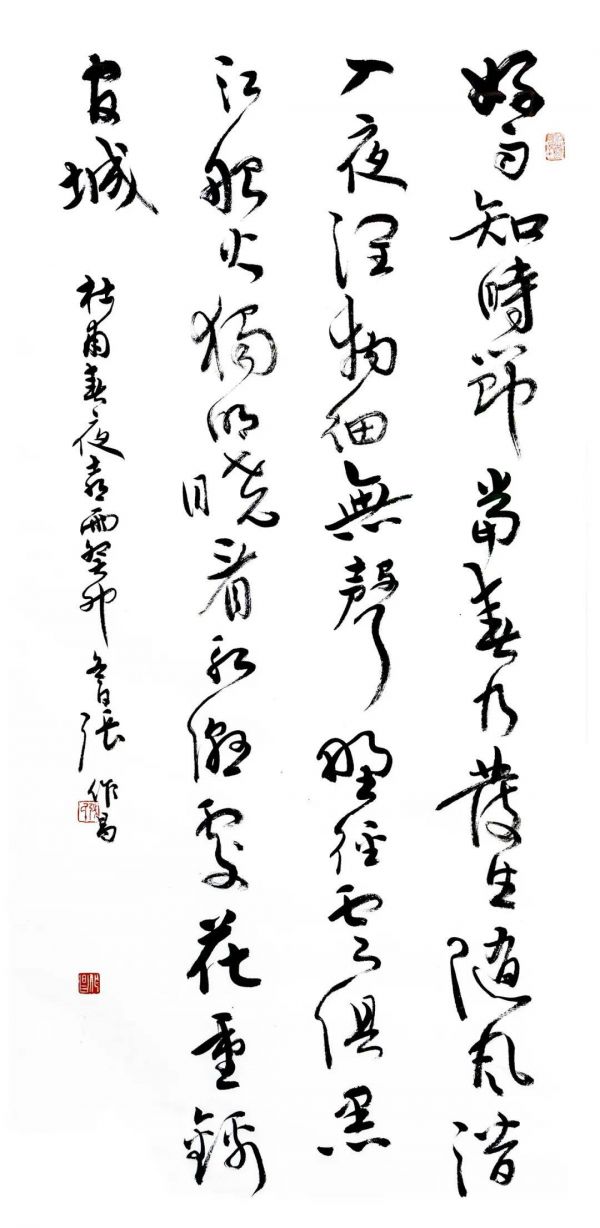 好雨知時節當春乃發生隨風潛
入夜潤物細無聲野徑雲俱黑
江船火獨明曉看紅濕處花重錦
官城
杜甫春夜喜雨癸卯冬日張作